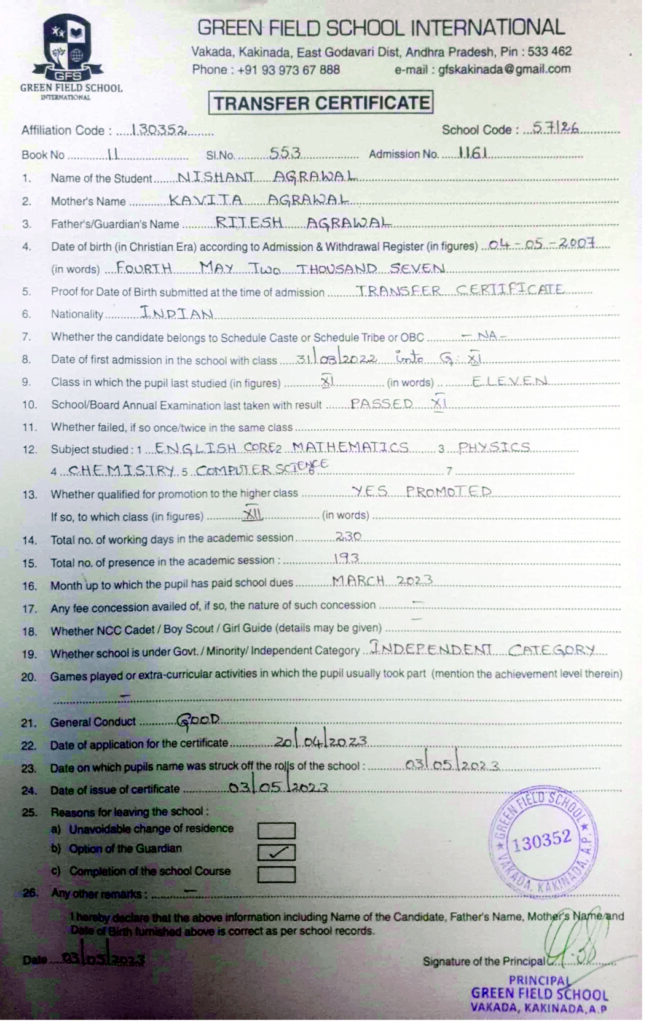 GREEN FIELD SCHOOL INTERNATIONAL
Vakada, Kakinada, East Godavari Dist, Andhra Pradesh, Pin : 533 462
Phone : +91 93 973 67 888 e-mail : gfskakinada@gmail.com
GFS
GREEN FIELD SCHOOL
INTERNATIONAL
TRANSFER CERTIFICATE
Affiliation Code : 130352 School Code : 57126
Book No 11 Sl.No. 553 Admission No. 1161
1. Name of the Student NISHANT AGRAWAL
2. Mother's Name KAVITA AGRAWAL
3. Father's/Guardian's Name RITESH AGRAWAL
4. Date of birth (in Christian Era) according to Admission & Withdrawal Register (in figures) 04-05-2007
(in words) FOURTH MAY TWO THOUSAND SEVEN
5. Proof for Date of Birth submitted at the time of admission TRANSFER CERTIFICATE
6. Nationality INDIAN
7. Whether the candidate belongs to Schedule Caste or Schedule Tribe or OBC - NA -
8. Date of first admission in the school with class 31/03/2022 into G: XI
9. Class in which the pupil last studied (in figures) XI (in words) ELEVEN
10. School/Board Annual Examination last taken with result PASSED XI
11. Whether failed, if so once/twice in the same class
12. Subject studied : 1 ENGLISH CORE 2 MATHEMATICS 3 PHYSICS
4 CHEMISTRY 5 COMPUTER SCIENCE 7
13. Whether qualified for promotion to the higher class YES PROMOTED
If so, to which class (in figures) XII (in words)
14. Total no. of working days in the academic session 230
15. Total no. of presence in the academic session : 193
16. Month up to which the pupil has paid school dues MARCH 2023
17. Any fee concession availed of, if so, the nature of such concession -
18. Whether NCC Cadet / Boy Scout / Girl Guide (details may be given) -
19. Whether school is under Govt. / Minority/ Independent Category INDEPENDENT CATEGORY
20. Games played or extra-curricular activities in which the pupil usually took part (mention the achievement level therein)
-
21. General Conduct GOOD
22. Date of application for the certificate 20/04/2023
23. Date on which pupils name was struck off the rolls of the school : 03/05/2023
24. Date of issue of certificate 03/05/2023
25. Reasons for leaving the school :
a) Unavoidable change of residence
b) Option of the Guardian ✓
c) Completion of the school Course
GREEN FIELD SCHOOL
130352
VAKADA, KAKINADA, A.P.
26. Any other remarks : -
I hereby declare that the above information including Name of the Candidate, Father's Name, Mother's Name and
Date of Birth furnished above is correct as per school records.
Date 03/05/2023 Signature of the Principal
PRINCIPAL
GREEN FIELD SCHOOL
VAKADA, KAKINADA, A.P